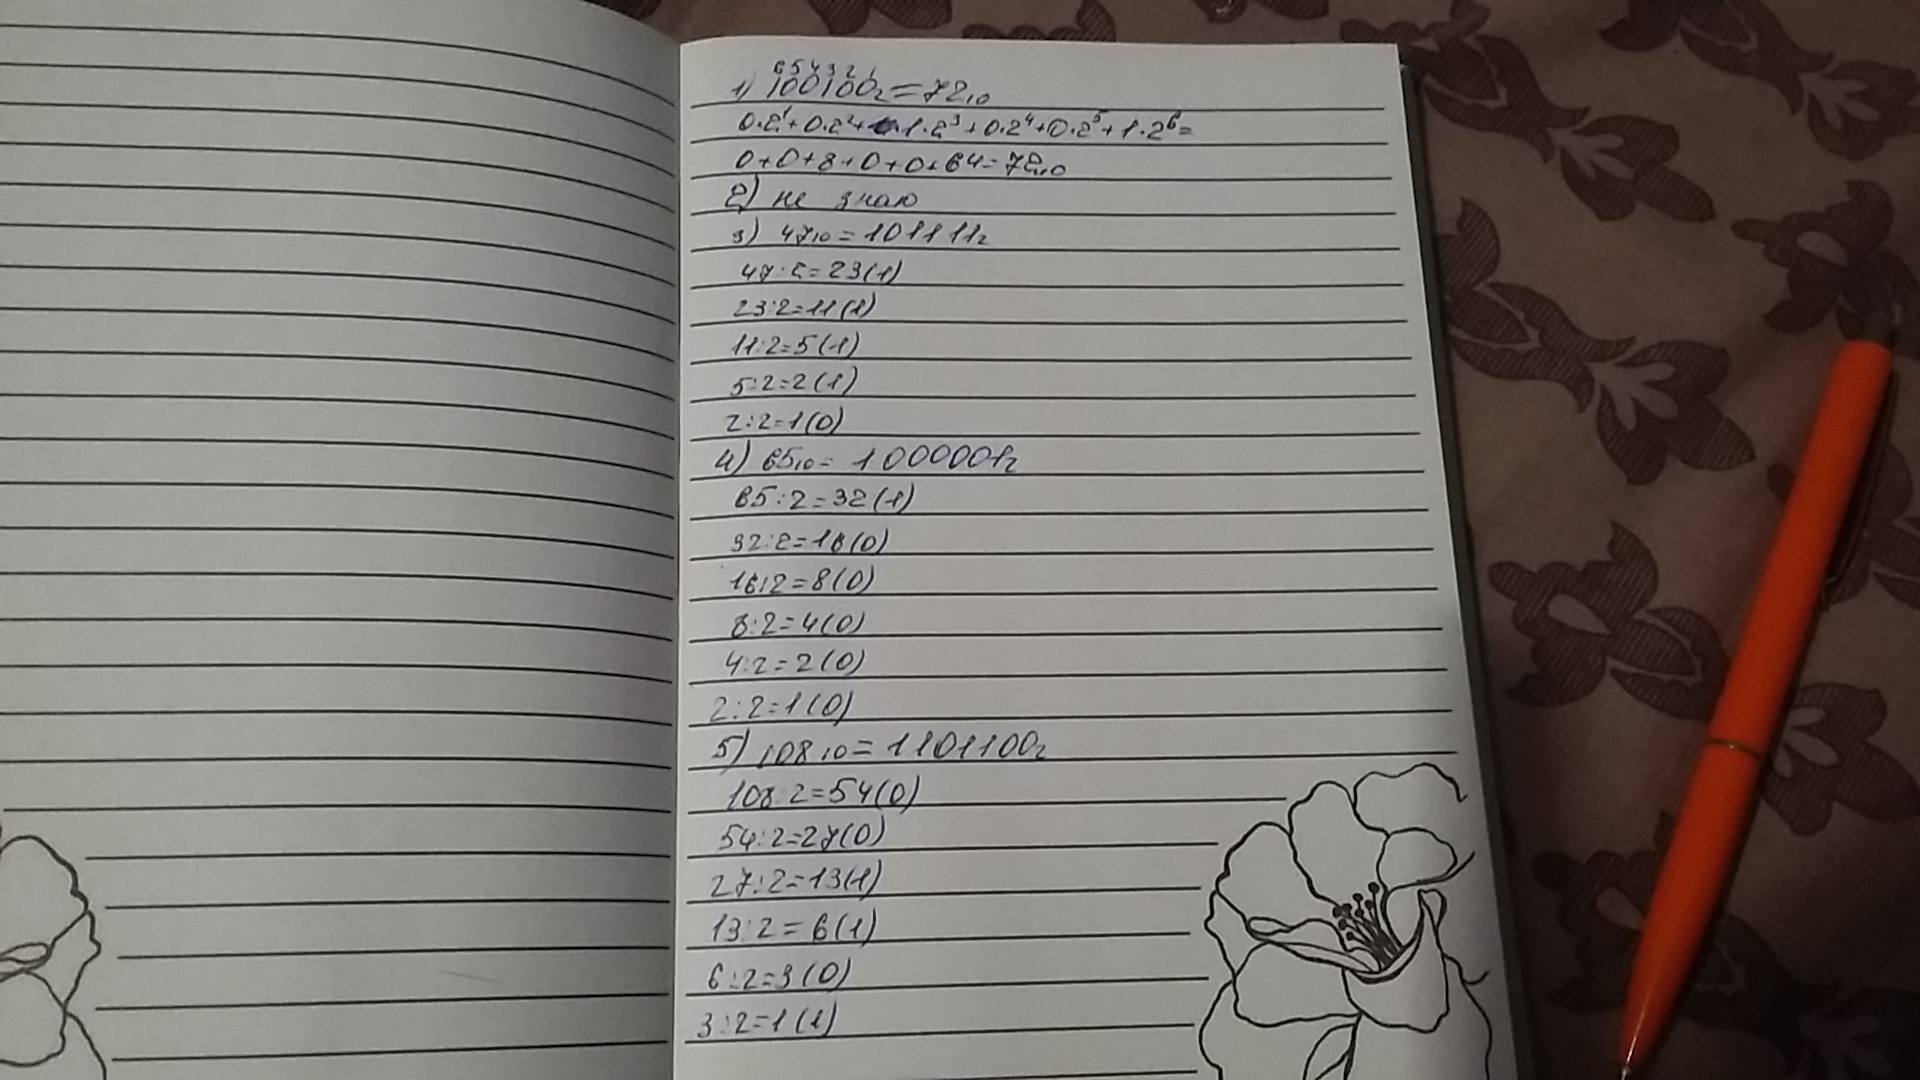 6 5 4 3 2 1
1) 100100₂ = 72₁₀
0·2¹+0·2²+1·2³+0·2⁴+0·2⁵+1·2⁶=
0+0+8+0+0+64=72₁₀
2) не знаю
3) 47₁₀ = 101111₂
47:2=23(1)
23:2=11(1)
11:2=5(1)
5:2=2(1)
2:2=1(0)
4) 65₁₀ = 1000001₂
65:2=32(1)
32:2=16(0)
16:2=8(0)
8:2=4(0)
4:2=2(0)
2:2=1(0)
5) 108₁₀ = 1101100₂
108:2=54(0)
54:2=27(0)
27:2=13(1)
13:2=6(1)
6:2=3(0)
3:2=1(1)